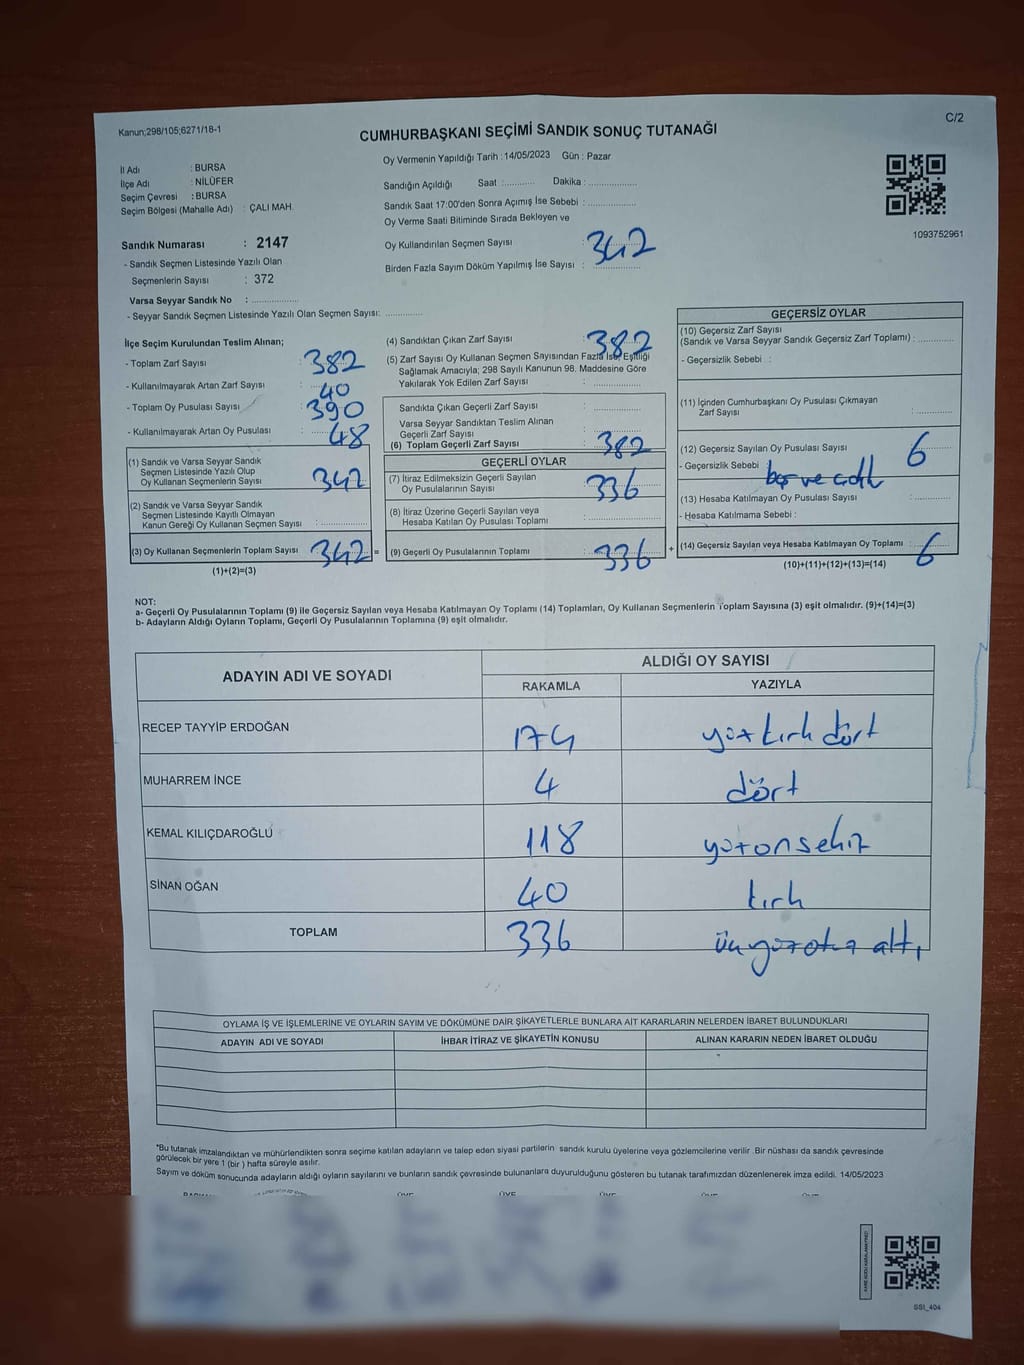 Kanun;298/105;6271/18-1
C/2
CUMHURBAŞKANI SEÇİMİ SANDIK SONUÇ TUTANAĞI
İl Adı : BURSA
İlçe Adı : NİLÜFER
Seçim Çevresi : BURSA
Seçim Bölgesi (Mahalle Adı) : ÇALI MAH.
Sandık Numarası : 2147
- Sandık Seçmen Listesinde Yazılı Olan
Seçmenlerin Sayısı : 372
Varsa Seyyar Sandık No : ..................
- Seyyar Sandık Seçmen Listesinde Yazılı Olan Seçmen Sayısı: ..............
Oy Vermenin Yapıldığı Tarih : 14/05/2023 Gün : Pazar
Sandığın Açıldığı Saat :............ Dakika :..................
Sandık Saat 17:00'den Sonra Açımış İse Sebebi :..................
Oy Verme Saati Bitiminde Sırada Bekleyen ve
Oy Kullandırılan Seçmen Sayısı : 342
Birden Fazla Sayım Döküm Yapılmış İse Sayısı :..................
1093752961
İlçe Seçim Kurulundan Teslim Alınan;
- Toplam Zarf Sayısı : 382
- Kullanılmayarak Artan Zarf Sayısı : 40
- Toplam Oy Pusulası Sayısı : 390
- Kullanılmayarak Artan Oy Pusulası : 48
(1) Sandık ve Varsa Seyyar Sandık
Seçmen Listesinde Yazılı Olup
Oy Kullanan Seçmenlerin Sayısı : 342
(2) Sandık ve Varsa Seyyar Sandık
Seçmen Listesinde Kayıtlı Olmayan
Kanun Gereği Oy Kullanan Seçmen Sayısı :..................
(3) Oy Kullanan Seçmenlerin Toplam Sayısı 342 =
(1)+(2)=(3)
(4) Sandıktan Çıkan Zarf Sayısı : 382
(5) Zarf Sayısı Oy Kullanan Seçmen Sayısından Fazla İse, Eşitliği
Sağlamak Amacıyla; 298 Sayılı Kanunun 98. Maddesine Göre
Yakılarak Yok Edilen Zarf Sayısı :..................
Sandıkta Çıkan Geçerli Zarf Sayısı :..................
Varsa Seyyar Sandıktan Teslim Alınan
Geçerli Zarf Sayısı :..................
(6) Toplam Geçerli Zarf Sayısı : 382
GEÇERLİ OYLAR
(7) İtiraz Edilmeksizin Geçerli Sayılan
Oy Pusulalarının Sayısı : 336
(8) İtiraz Üzerine Geçerli Sayılan veya
Hesaba Katılan Oy Pusulası Toplamı :..................
(9) Geçerli Oy Pusulalarının Toplamı : 336 +
GEÇERSİZ OYLAR
(10) Geçersiz Zarf Sayısı
(Sandık ve Varsa Seyyar Sandık Geçersiz Zarf Toplamı) :..........
- Geçersizlik Sebebi :
(11) İçinden Cumhurbaşkanı Oy Pusulası Çıkmayan
Zarf Sayısı :..........
(12) Geçersiz Sayılan Oy Pusulası Sayısı : 6
- Geçersizlik Sebebi : boş ve
(13) Hesaba Katılmayan Oy Pusulası Sayısı :..........
- Hesaba Katılmama Sebebi :
(14) Geçersiz Sayılan veya Hesaba Katılmayan Oy Toplamı : 6
(10)+(11)+(12)+(13)=(14)
NOT:
a- Geçerli Oy Pusulalarının Toplamı (9) ile Geçersiz Sayılan veya Hesaba Katılmayan Oy Toplamı (14) Toplamları, Oy Kullanan Seçmenlerin Toplam Sayısına (3) eşit olmalıdır. (9)+(14)=(3)
b- Adayların Aldığı Oyların Toplamı, Geçerli Oy Pusulalarının Toplamına (9) eşit olmalıdır.
ADAYIN ADI VE SOYADI
ALDIĞI OY SAYISI
RAKAMLA YAZIYLA
RECEP TAYYİP ERDOĞAN 174 yüz kırk dört
MUHARREM İNCE 4 dört
KEMAL KILIÇDAROĞLU 118 yüzonsekiz
SİNAN OĞAN 40 kırk
TOPLAM 336 üçyüzotuz altı
OYLAMA İŞ VE İŞLEMLERİNE VE OYLARIN SAYIM VE DÖKÜMÜNE DAİR ŞİKAYETLERLE BUNLARA AİT KARARLARIN NELERDEN İBARET BULUNDUKLARI
ADAYIN ADI VE SOYADI İHBAR İTİRAZ VE ŞİKAYETİN KONUSU ALINAN KARARIN NEDEN İBARET OLDUĞU
*Bu tutanak imzalandıktan ve mühürlendikten sonra seçime katılan adayların ve talep eden siyasi partilerin sandık kurulu üyelerine veya gözlemcilerine verilir. Bir nüshası da sandık çevresinde
görülecek bir yere 1 (bir ) hafta süreyle asılır.
Sayım ve döküm sonucunda adayların aldığı oyların sayılarını ve bunların sandık çevresinde bulunanlara duyurulduğunu gösteren bu tutanak tarafımızdan düzenlenerek imza edildi. 14/05/2023
SSI_404